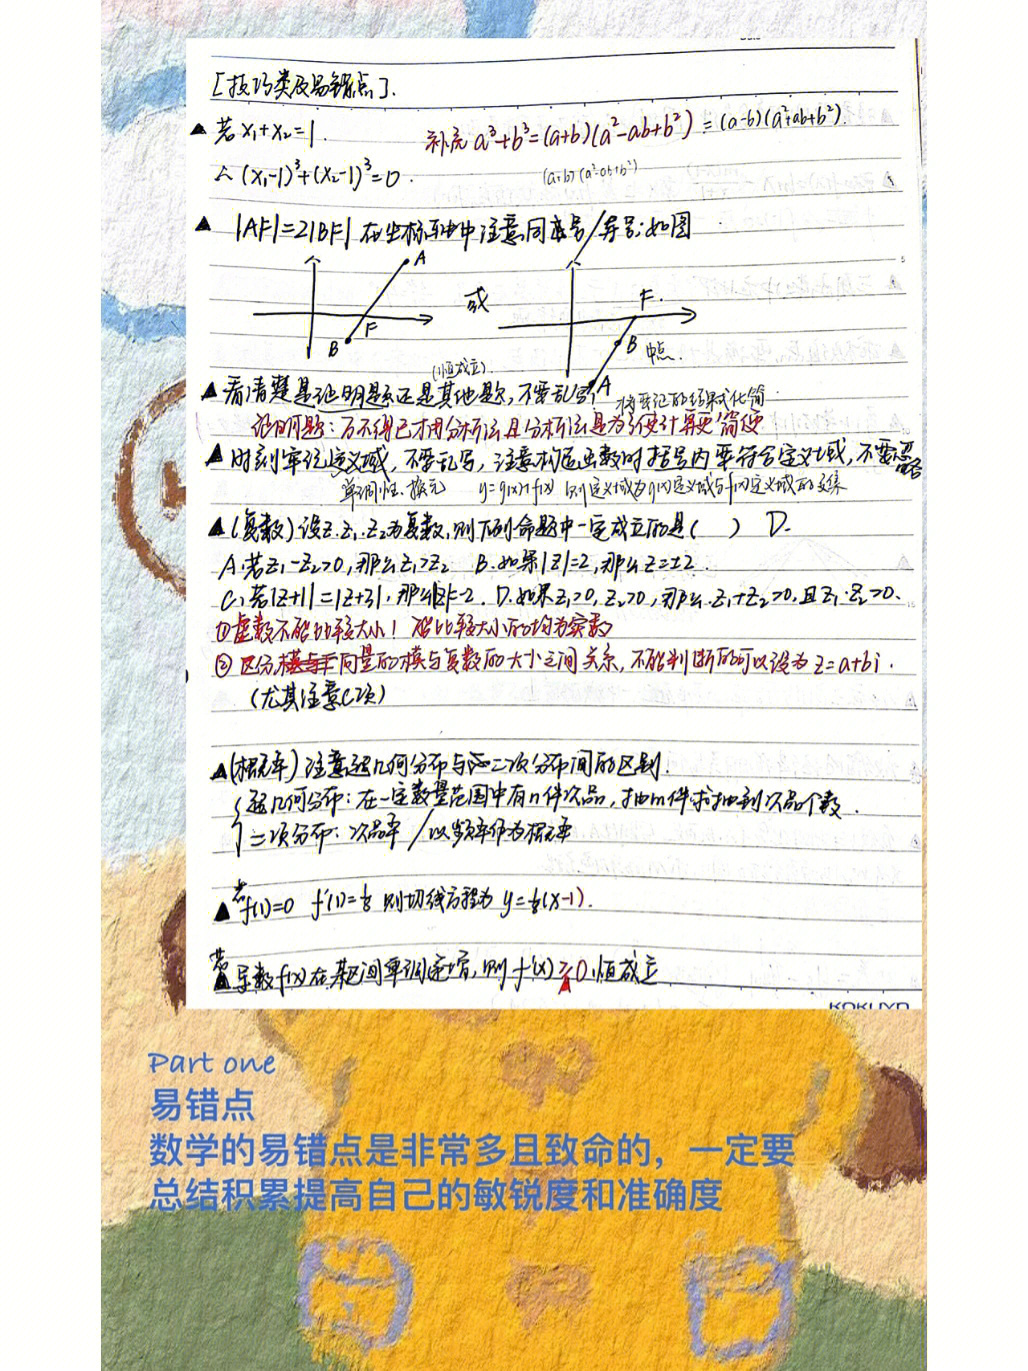 [技巧类及易错点].
▲ 若x₁+x₂=1. 补充 a³+b³=(a+b)(a²-ab+b²) = (a-b)(a²+ab+b²).
∴ (x₁-1)³+(x₂-1)³=0. (a+b)(a²-ab+b²)
▲ |AF|=2|BF| 在坐标轴中注意同号/异号;如图
A F B 或 F. B 中点. A
(恒成立).
▲ 看清楚是证明题还是其他题,不要乱写 将要证的结果式化简
证明题:万不得已才用分析法且分析法是为了使计算更简便
▲ 时刻牢记定义域,不要乱写,注意构造函数时括号内要符合定义域,不要忽略
单调性、换元 y=g(x)+f(x) 则定义域为g(x)定义域与f(x)定义域的交集
▲(复数)设z.z₁.z₂为复数,则下列命题中一定成立的是( ) D.
A.若z₁-z₂>0,那么z₁>z₂ B.如果|z|=2,那么z=±2.
C.若|z+1|=|z+3|.那么|z|=2. D.如果z₁>0,z₂>0,那么.z₁+z₂>0,且z₁·z₂>0.
①虚数不能比较大小! 能比较大小的均为实数
② 区分向量的模与复数的大小之间关系,不能判断的可以设为z=a+bi.
(尤其注意C项)
▲(概率)注意超几何分布与二次分布间的区别.
超几何分布:在一定数量范围中有n件次品,抽m件求抽到次品个数.
二次分布:次品率/以频率作为概率
▲ 若f(1)=0 f'(1)=½ 则切线方程为 y=½(x-1).
▲ 若导数f(x)在某区间单调递增,则f'(x)≥0恒成立
KOKUYO
Part one
易错点
数学的易错点是非常多且致命的,一定要
总结积累提高自己的敏锐度和准确度